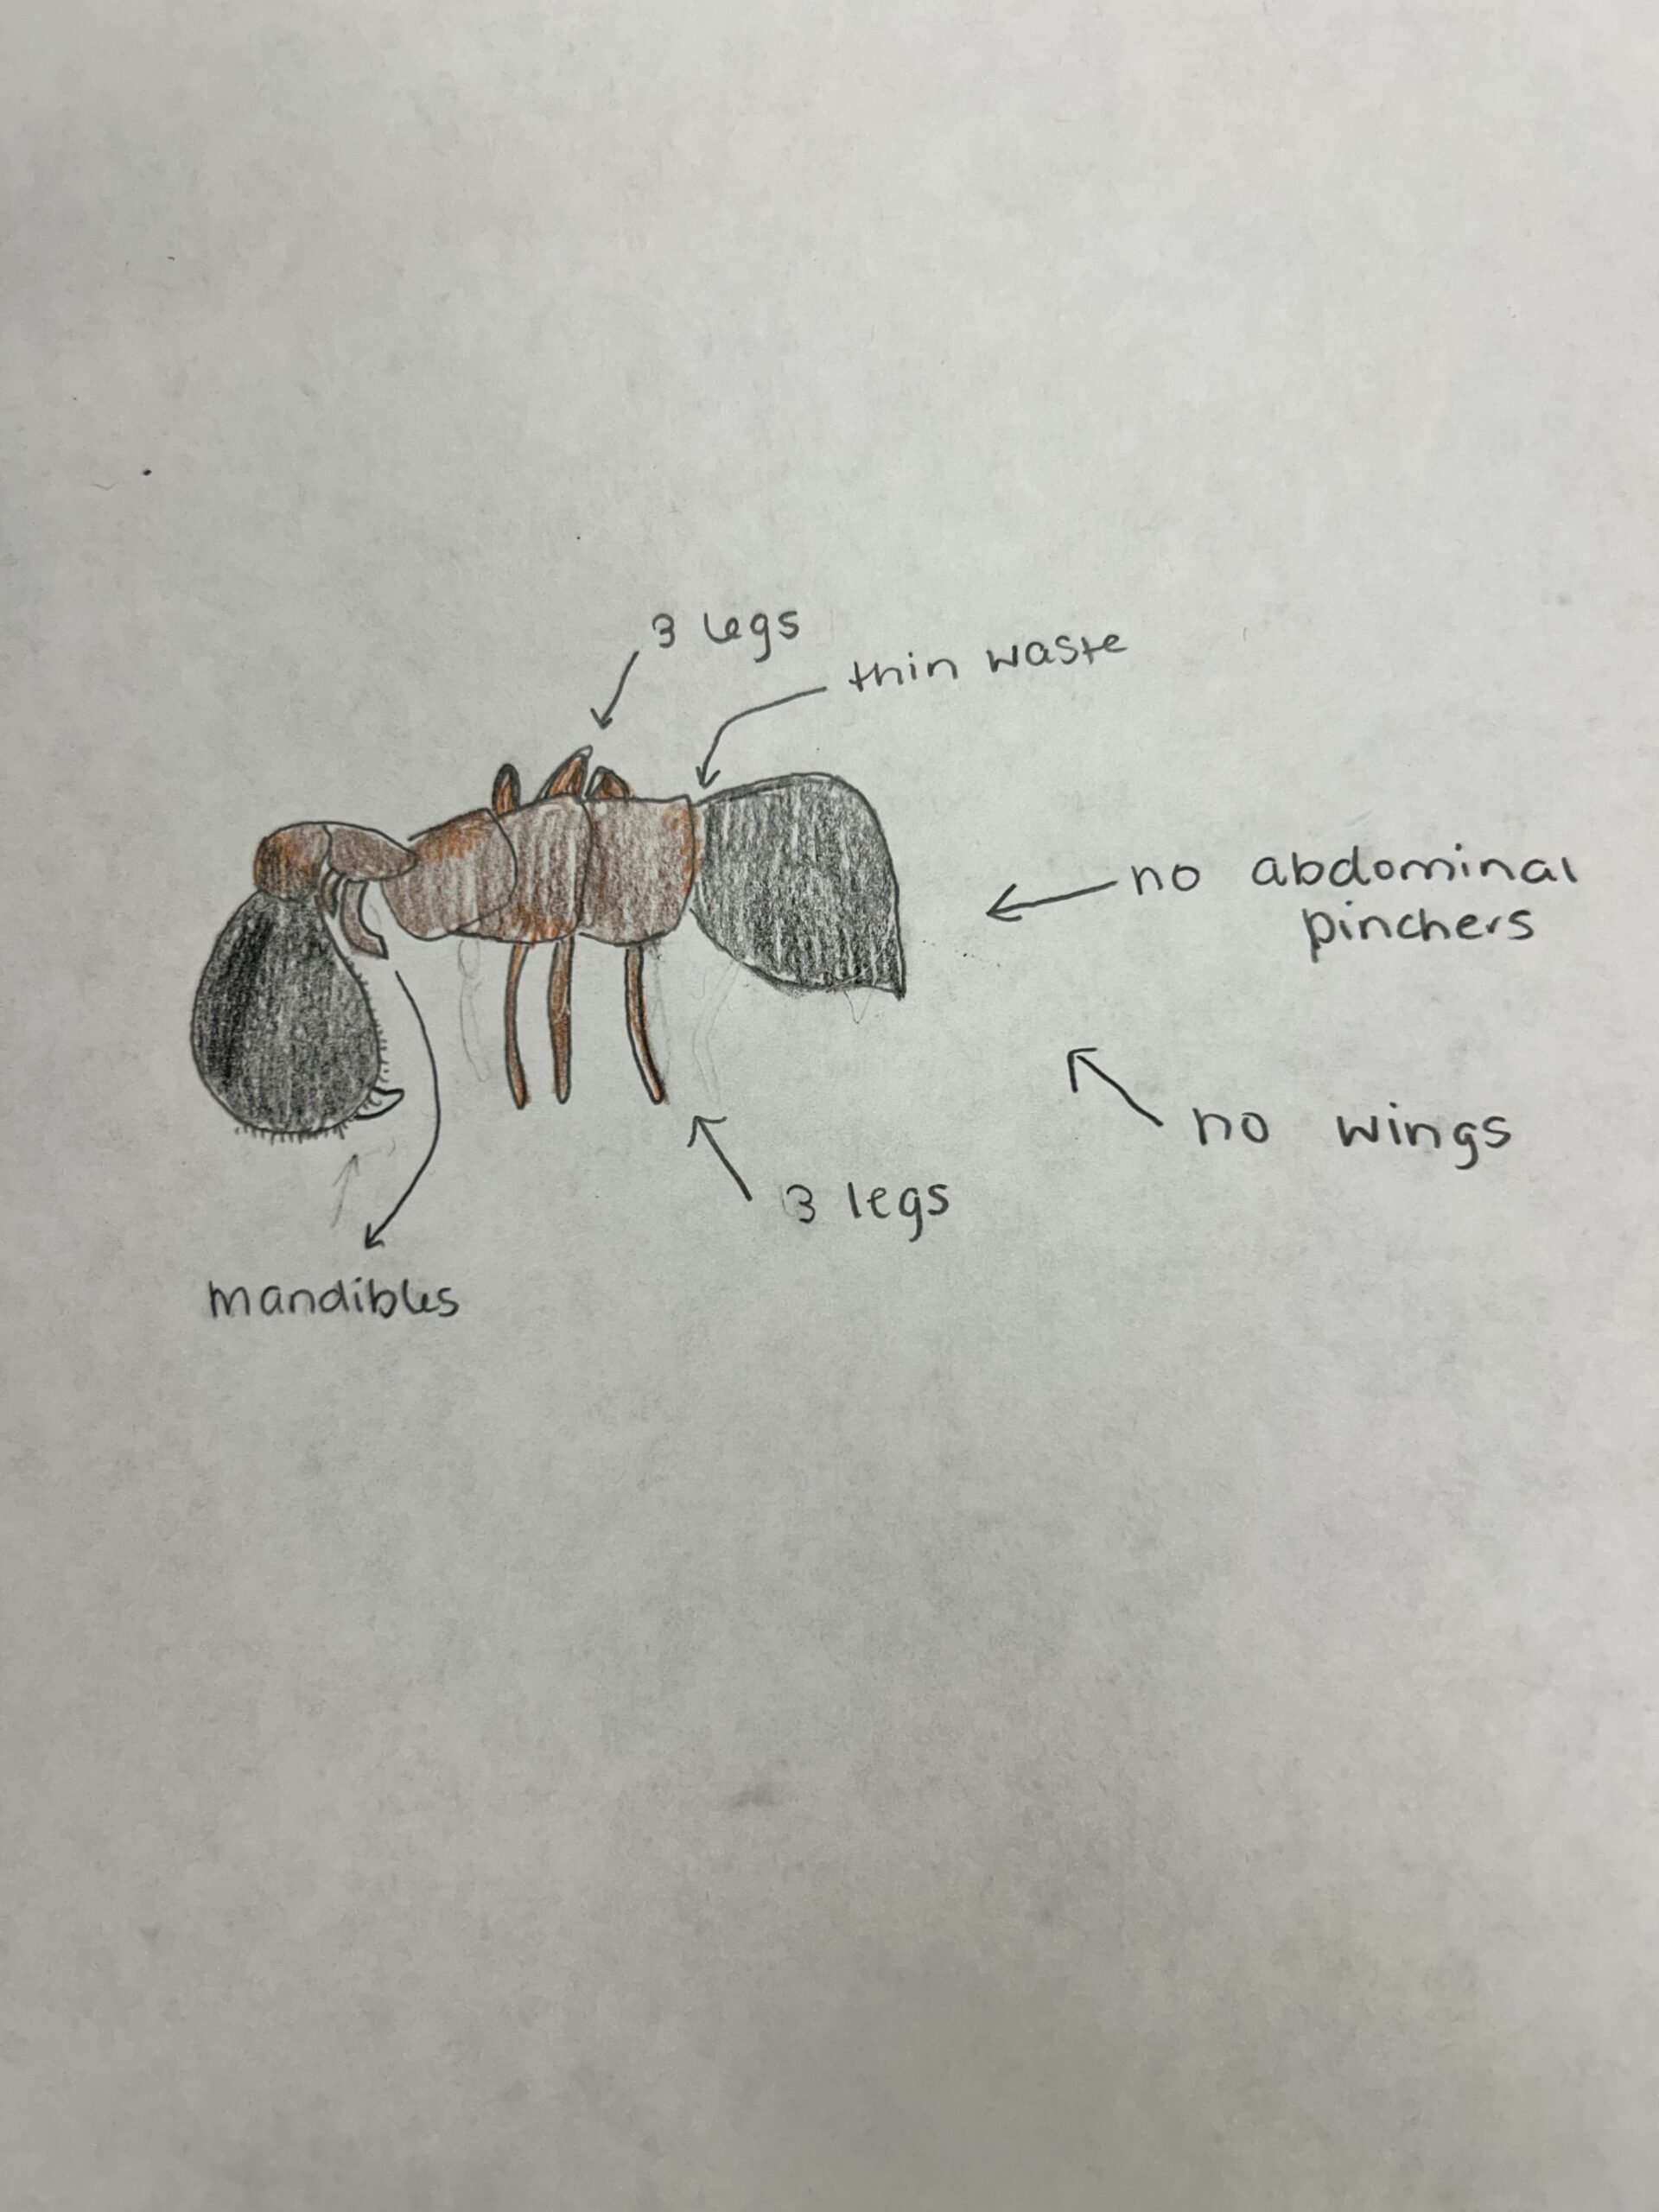 3 legs
thin waste
no abdominal
pinchers
no wings
3 legs
mandibles